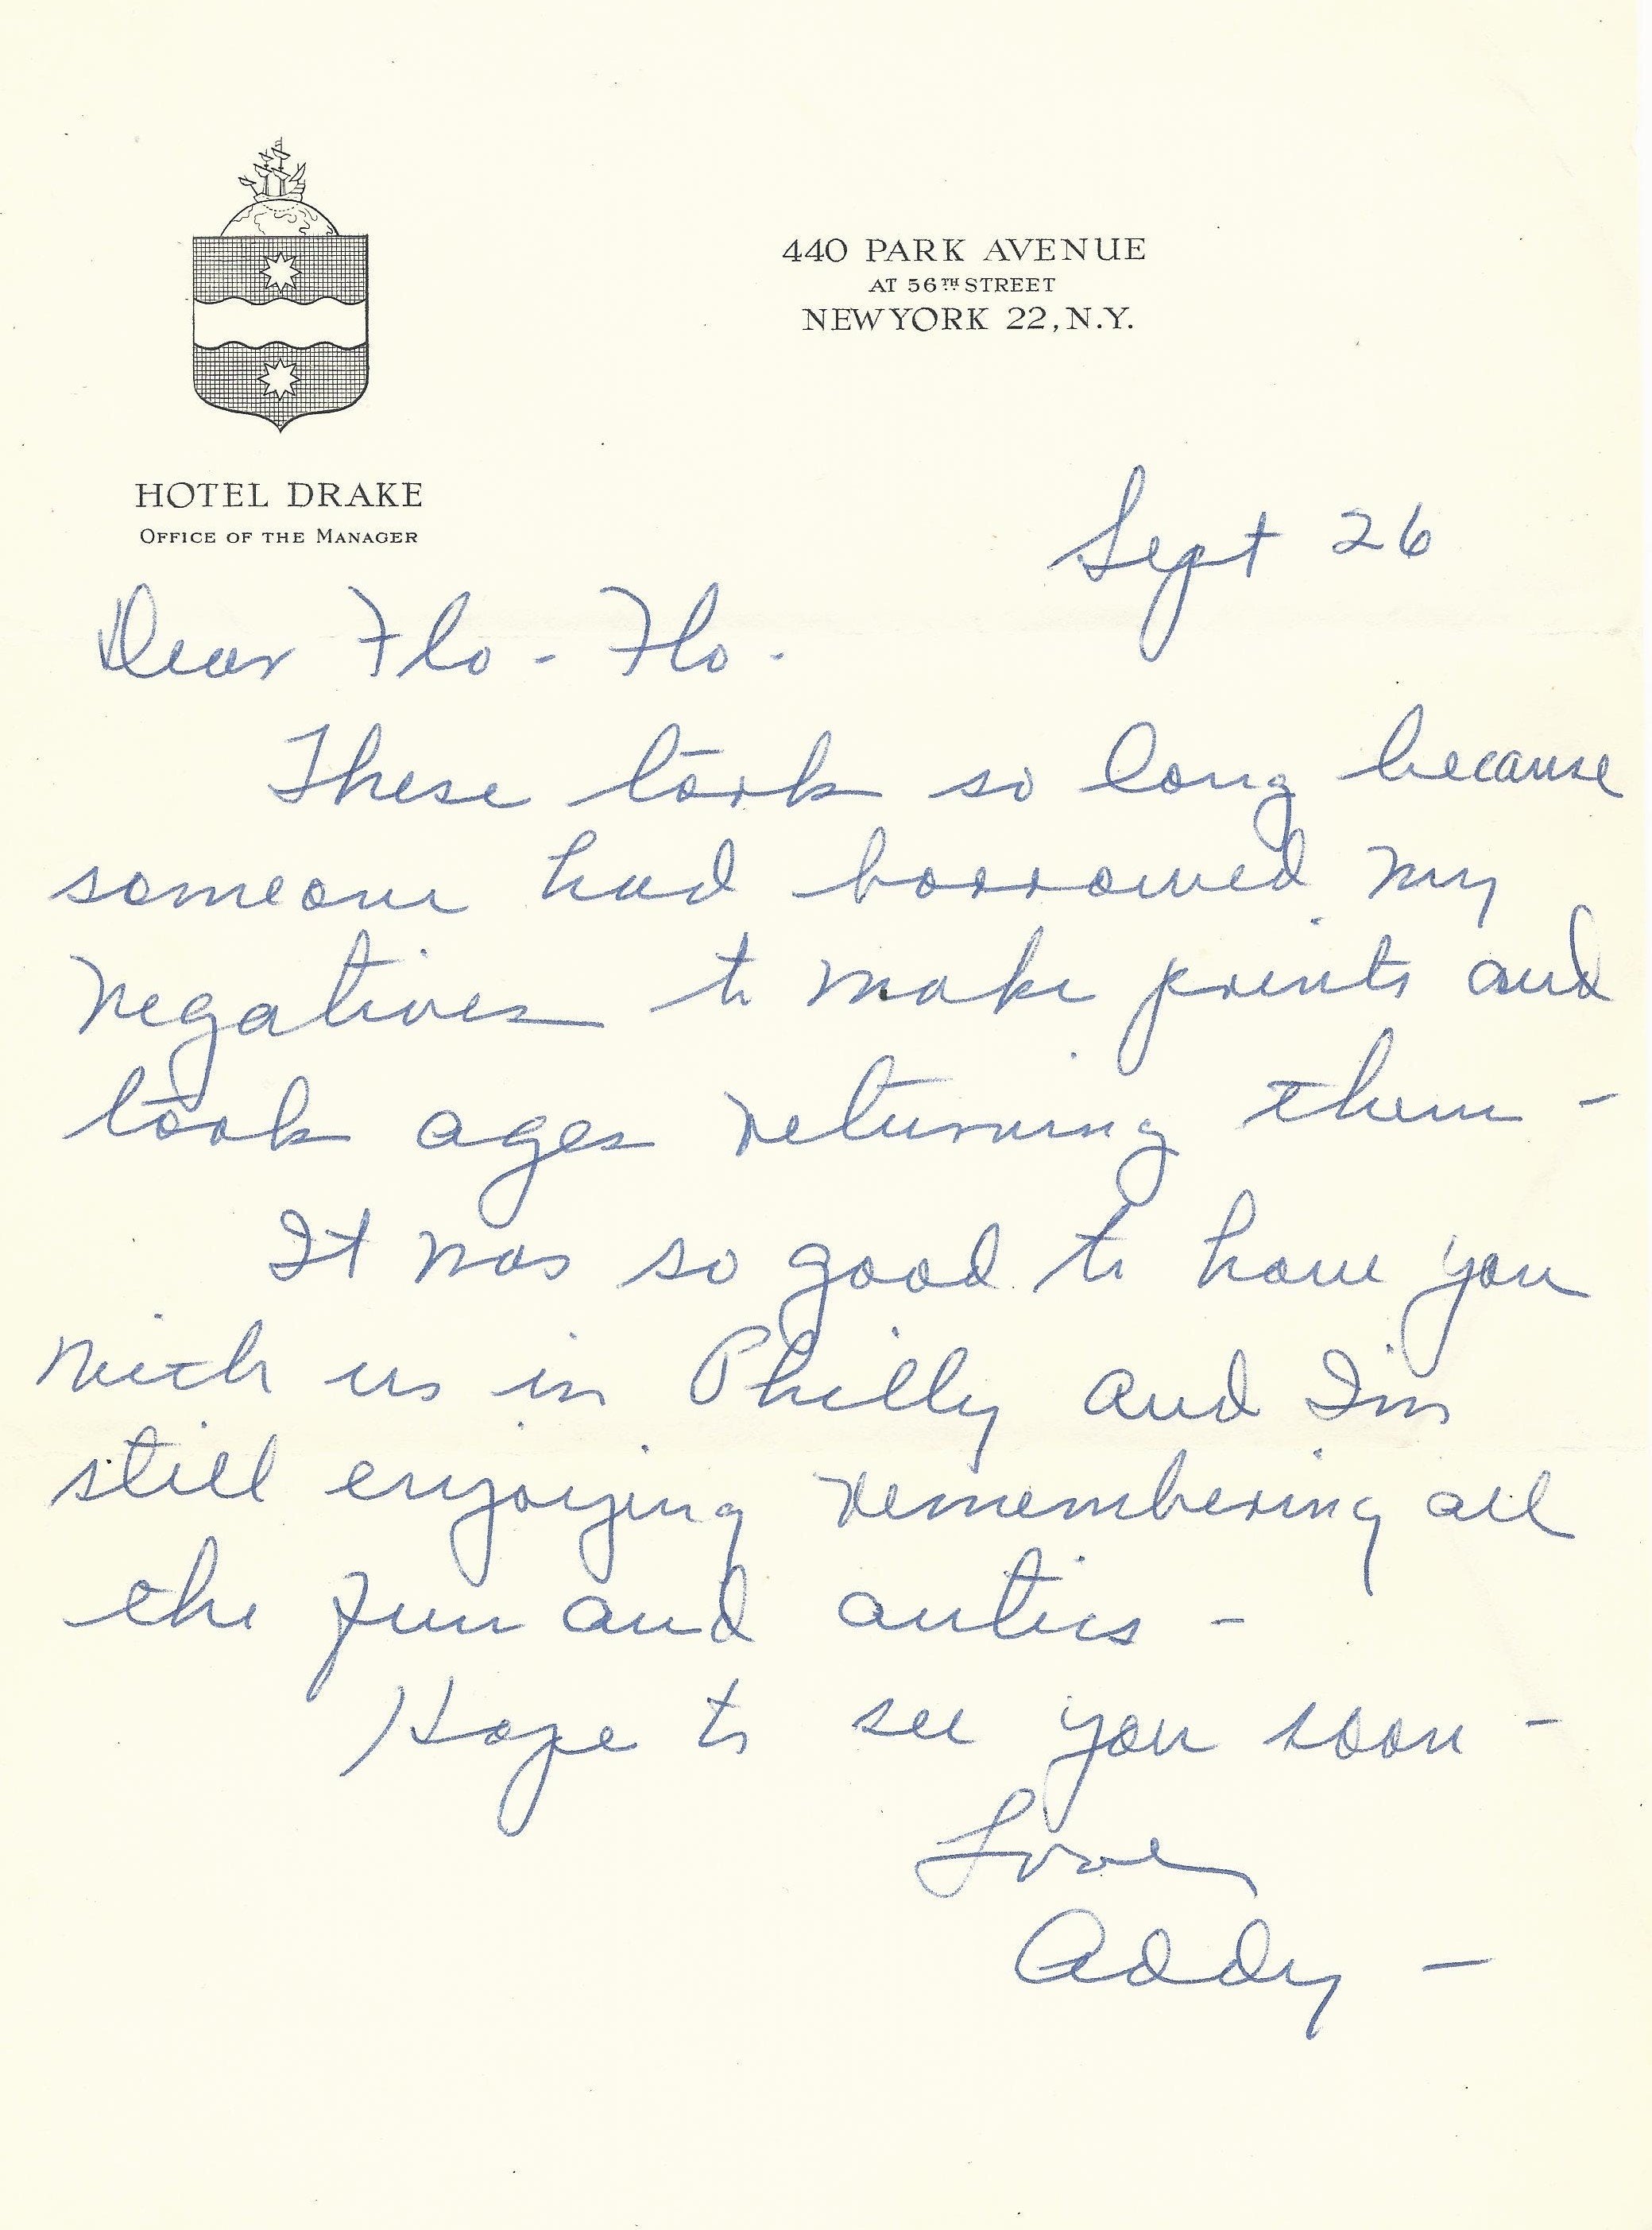 440 PARK AVENUE
AT 56TH STREET
NEW YORK 22, N.Y.
HOTEL DRAKE
OFFICE OF THE MANAGER
Sept 26
Dear Flo-Flo.
These took so long because
someone had borrowed my
negatives to make prints and
took ages returning them -
It was so good to have you
with us in Philly and I'm
still enjoying remembering all
the fun and antics -
Hope to see you soon -
Love
Addy -